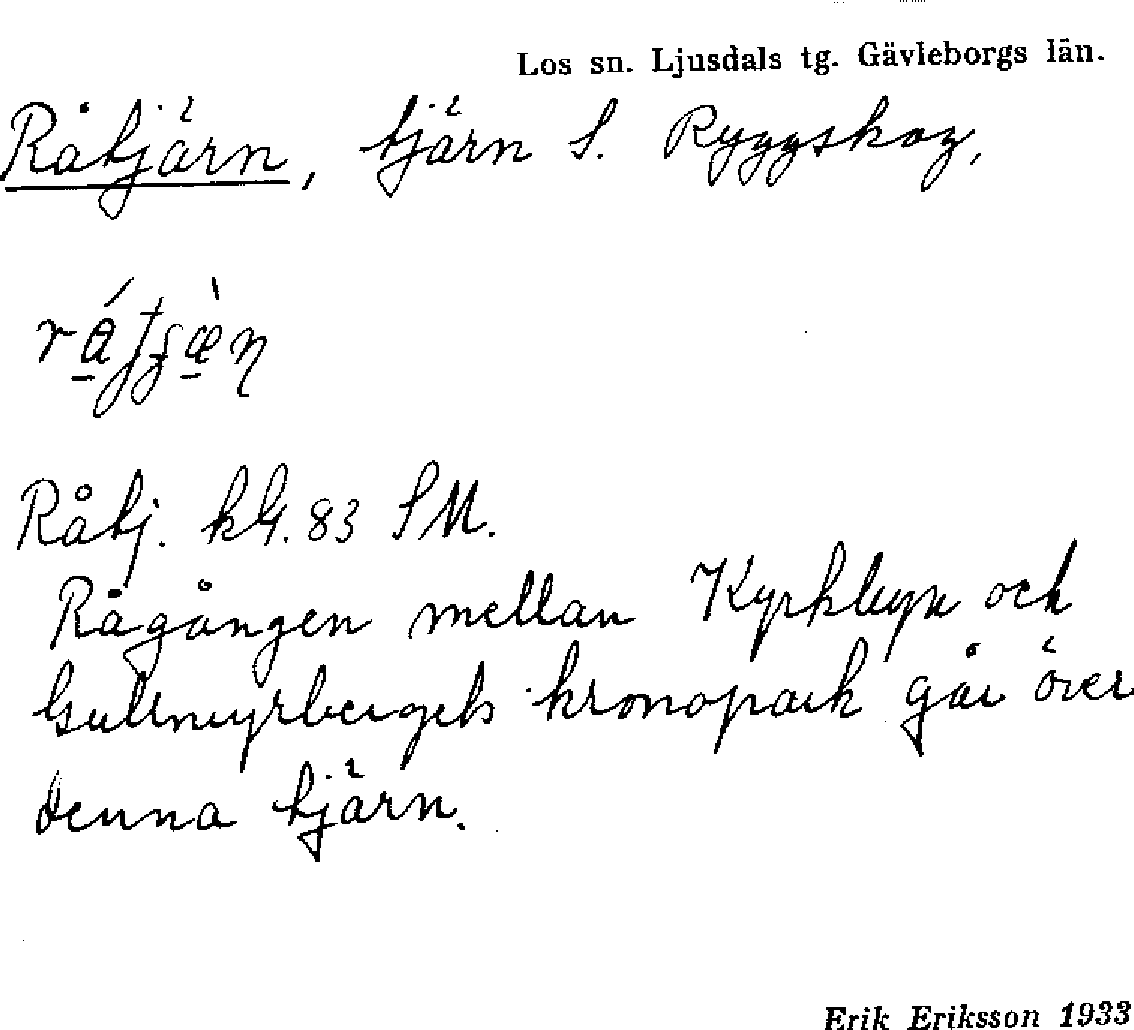 Los sn. Ljusdals tg. Gävleborgs län.
Råtjärn, tjärn S. Ryggskog,
Råtj. kbl. 83 SM.
Rågången mellan Kyrkbyn och
Gullmyrbergets kronopark går över
denna tjärn.
Erik Eriksson 1933